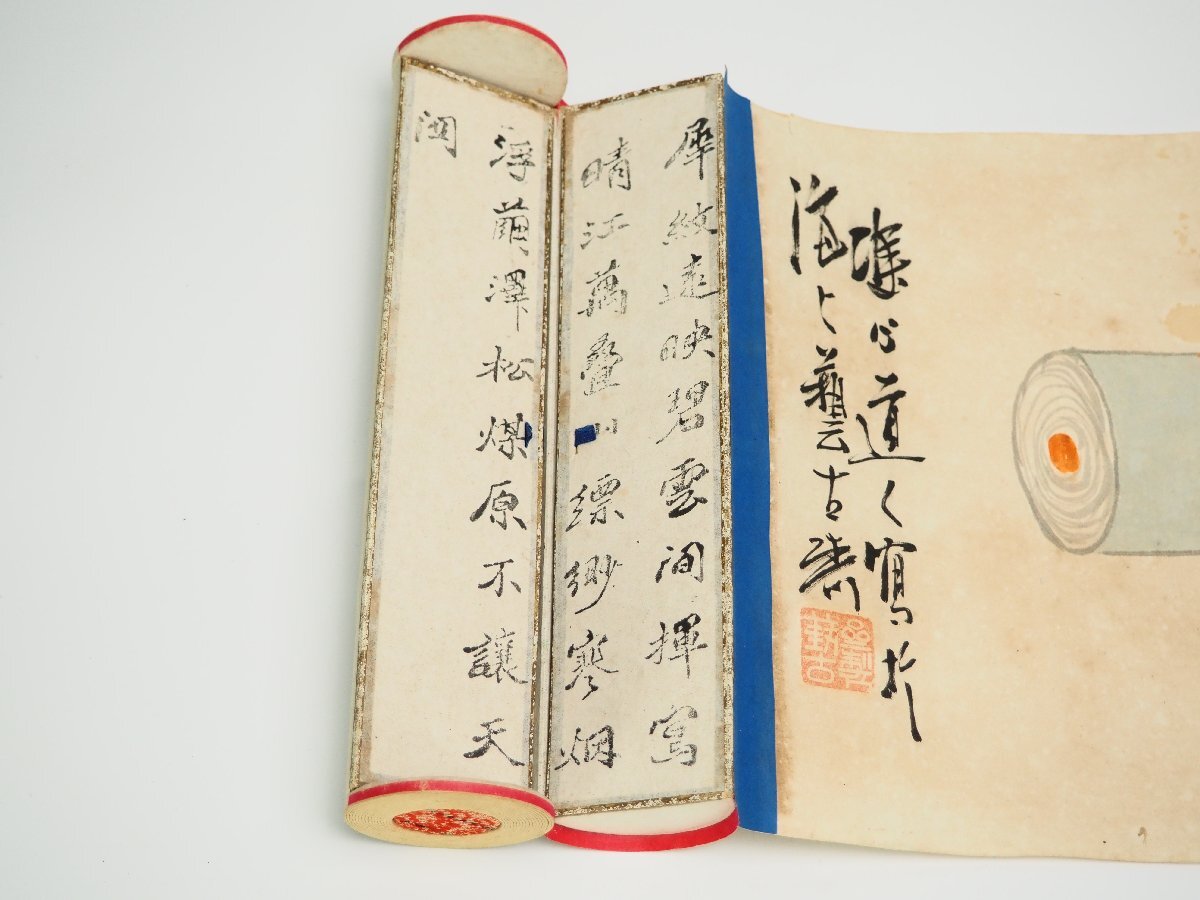 道人寫於
海上藝古齋
犀紋遠映碧雲間揮寫
晴江萬疊山縹緲寒烟
浮繭澤松煤原不讓天